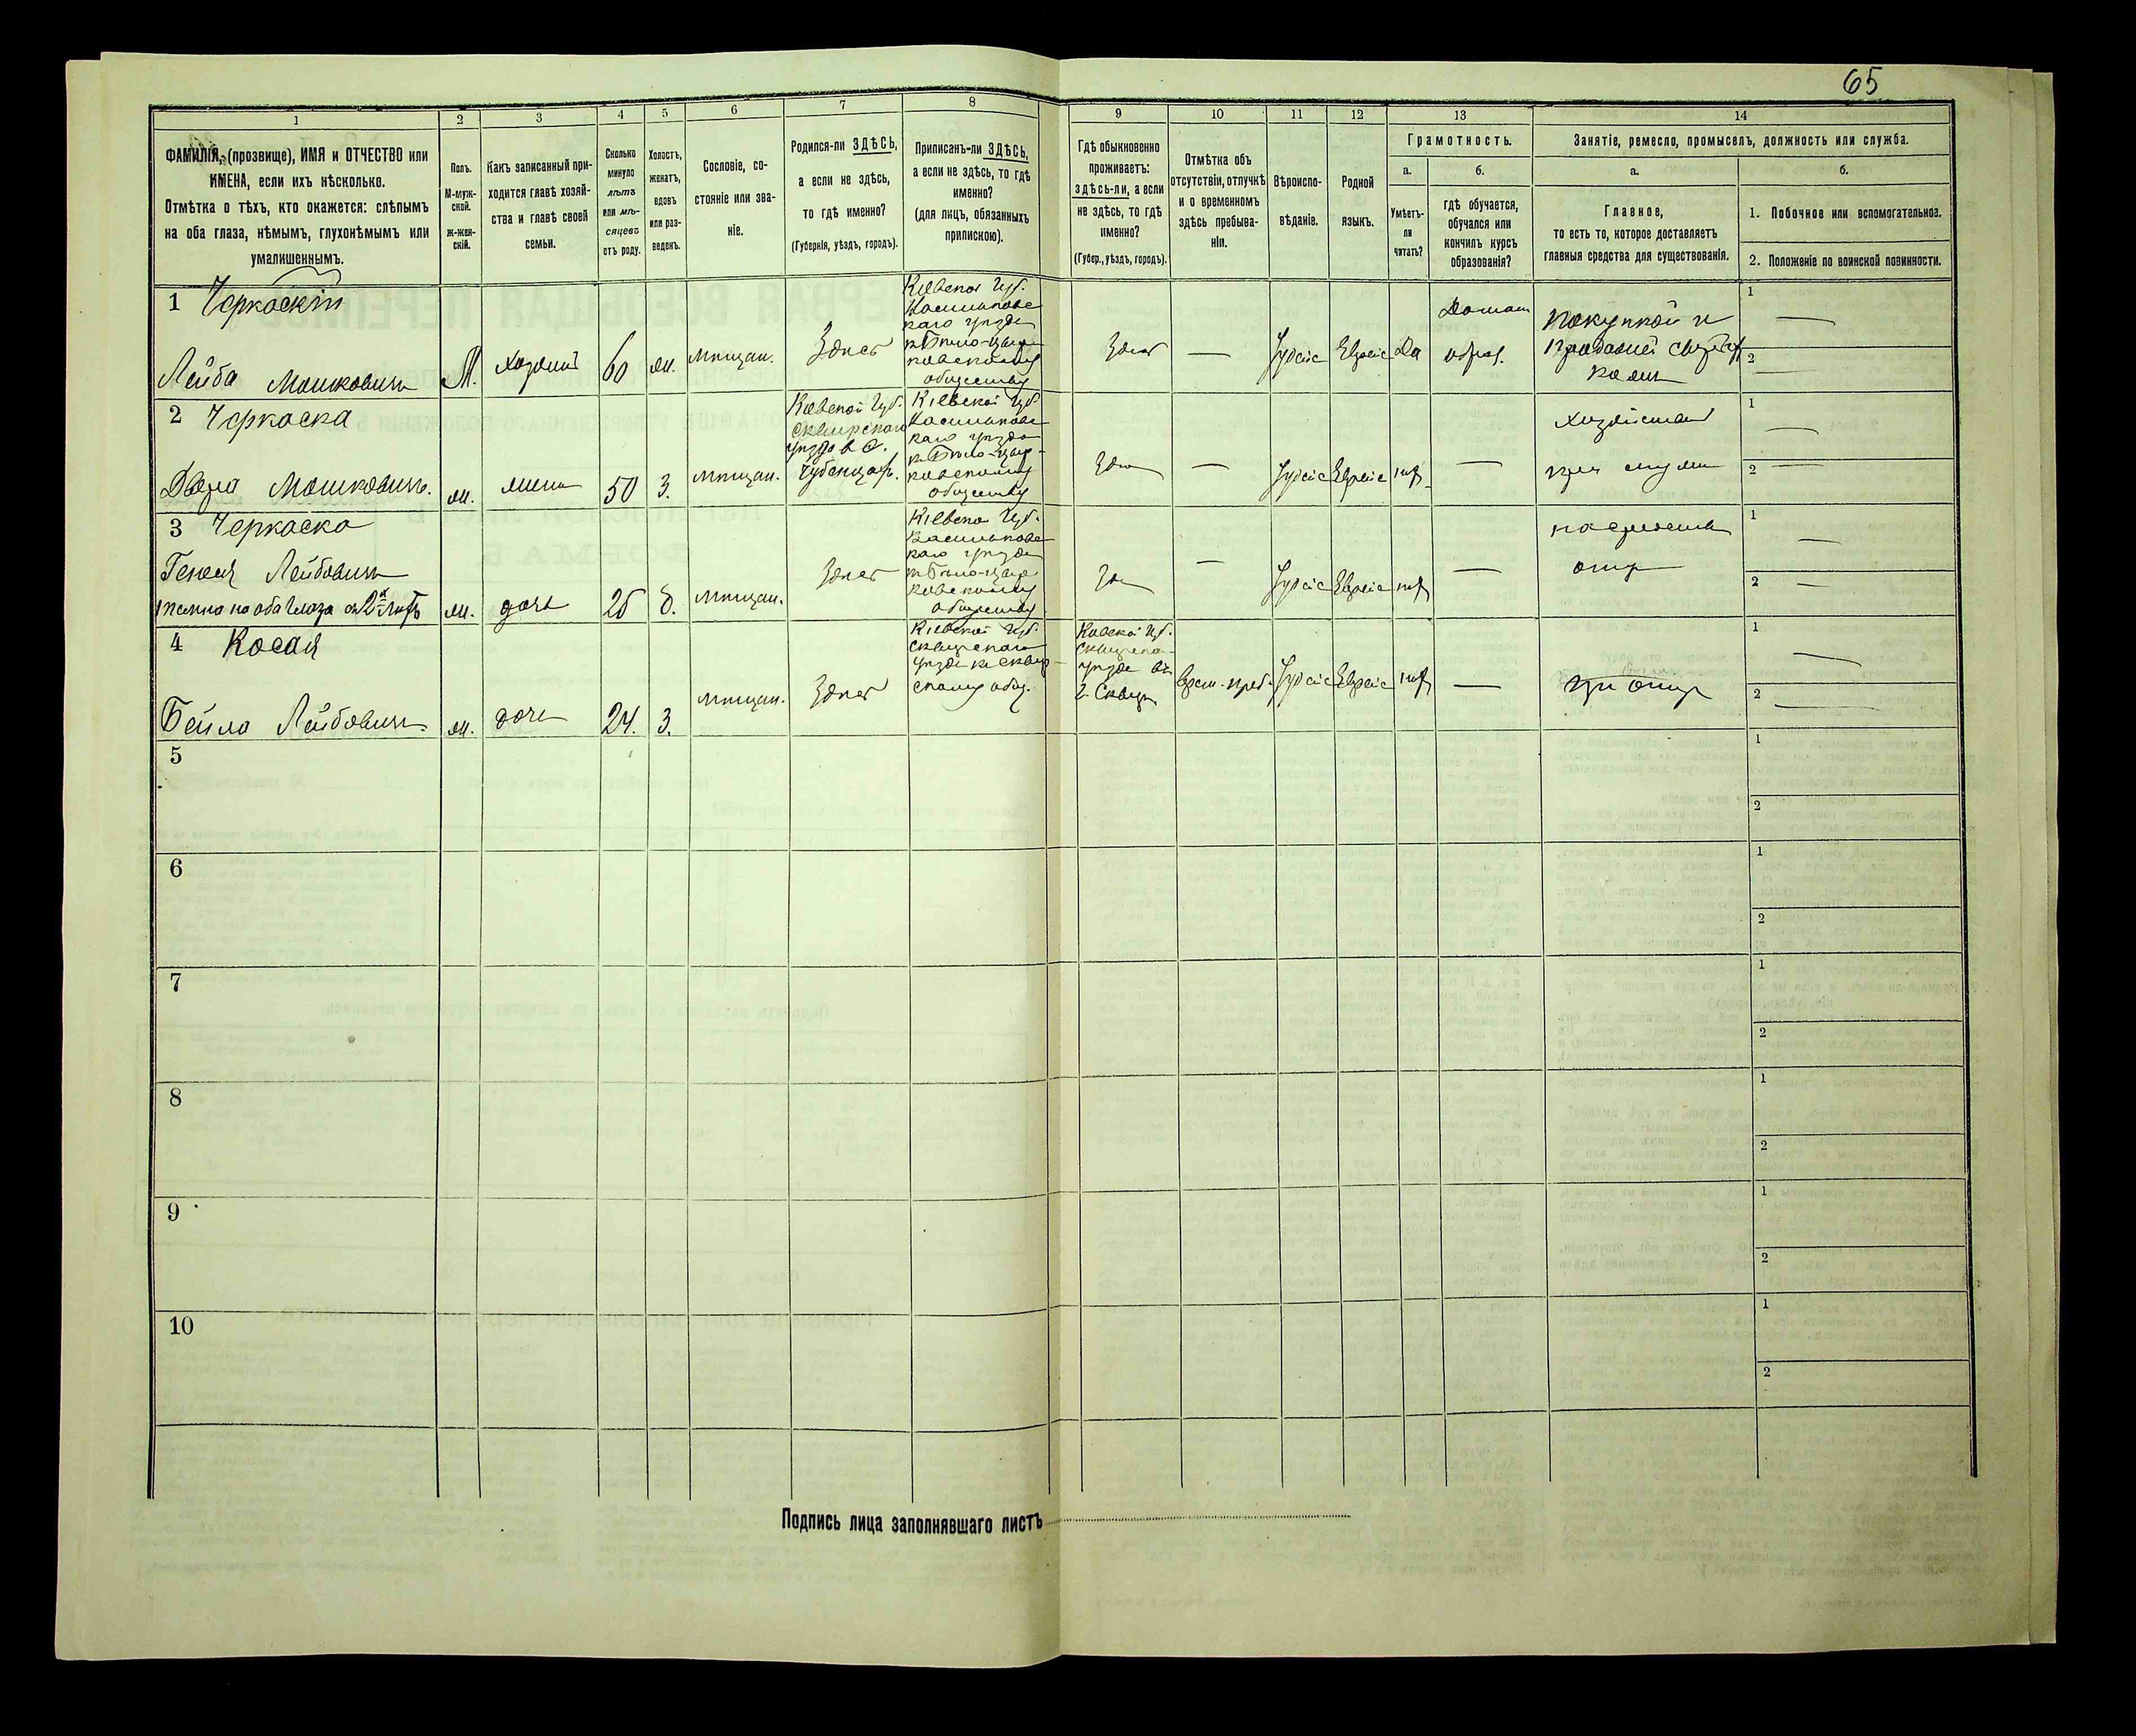 65
1
2
3
4
5
6
7
8
9
10
11
12
13
14
ФАМИЛІЯ, (прозвище), ИМЯ и ОТЧЕСТВО или
ИМЕНА, если ихъ нѣсколько.
Отмѣтка о тѣхъ, кто окажется: слѣпымъ
на оба глаза, нѣмымъ, глухонѣмымъ или
умалишеннымъ.
Полъ.
М-муж-
ской.
ж-жен-
скій.
Какъ записанный при-
ходится главѣ хозяй-
ства и главѣ своей
семьи.
Сколько
минуло
лѣтъ
или мѣ-
сяцевъ
отъ роду.
Холостъ,
женатъ,
вдовъ
или раз-
веденъ.
Сословіе, со-
стояніе или зва-
ніе.
Родился-ли ЗДѢСЬ,
а если не здѣсь,
то гдѣ именно?
(Губернія, уѣздъ, городъ).
Приписанъ-ли ЗДѢСЬ,
а если не здѣсь, то гдѣ
именно?
(для лицъ, обязанныхъ
припискою).
Гдѣ обыкновенно
проживаетъ:
здѣсь-ли, а если
не здѣсь, то гдѣ
именно?
(Губер., уѣздъ, городъ).
Отмѣтка объ
отсутствіи, отлучкѣ
и о временномъ
здѣсь пребыва-
ніи.
Вѣроиспо-
вѣданіе.
Родной
языкъ.
Грамотность.
а.
Умѣетъ-
ли
читать?
б.
гдѣ обучается,
обучался или
кончилъ курсъ
образованія?
Занятіе, ремесло, промыселъ, должность или служба.
а.
Главное,
то есть то, которое доставляетъ
главныя средства для существованія.
б.
1. Побочное или вспомогательное.
2. Положеніе по воинской повинности.
1 Черкаскій
Лейба Мошковичъ
М.
хозяинъ
60
ж.
мѣщан.
Здѣсь
Кіевской Губ.
Васильковс
каго уѣзда
къ Бѣло-Цер
ковскому
обществу
Здѣсь
—
Іудейс
Еврейс
да
Домаш
образ.
покупкой и
продажей
1 —
2 —
2 Черкаска
Двера Мошковичъ.
ж.
жена
50
З.
мѣщан.
Кіевской Губ.
Сквирскаго
уѣзда в
Кіевской Губ
Васильковс
каго уѣзда
къ Бѣло-Цер-
ковскому
обществу
Здѣ
—
Іудейс
Еврейс
нѣт
—
хозяйства
при мужѣ
1 —
2 —
3 Черкаска
Лейбовичъ
темна на оба глаза съ 2х лѣтъ
ж.
дочь
б.
мѣщан.
Здѣсь
Кіевской Губ.
Васильковс
каго уѣзда
къ Бѣло-Цер
ковскому
обществу
Зд
—
Іудейс
Еврейс
нѣт
—
на средства
отца
1 —
2 —
4 Косая
Бейла Лейбовичъ.
ж.
дочь
24.
З.
мѣщан.
Здѣсь
Кіевской Губ.
Сквирскаго
уѣзда къ Сквир-
скому общ.
Кіевской Губ.
Сквирска-
уѣзда въ
г. Сквирѣ
врем. преб.
Іудейс
Еврейс
нѣт
—
при отцѣ
1 —
2 —
5
1
2
6
1
2
7
1
2
8
1
2
9
1
2
10
1
2
Подпись лица заполнявшаго листъ